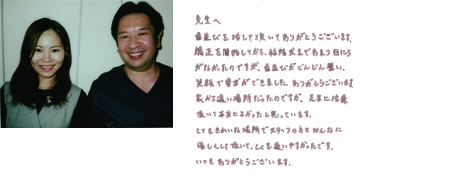 先生へ
歯並びを治して頂いてありがとうございます。
矯正を開始してから、結婚式まであまり日にち
がなかったのですが、歯並びがどんどん整い、
笑顔で挙式ができました。ありがとうございます
家から遠い場所だったのですが、先生に治療
頂いて本当によかったと思っています。
とてもきれいな場所でスタッフの方々みんなに
優しくして頂いて、とても通いやすかったです。
いつもありがとうございます。